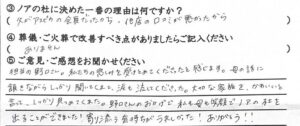 ③ノアの社に決めた一番の理由は何ですか?
父がアルカルの会員だったから・他店の口コミが悪かったから
④葬儀・ご火葬で改善すべき点がありましたらご記入ください
ありません
⑤ご意見・ご感想をお聞かせください
担当の野口さん。私たちの悲しみを受けとめてくださったと感じます。母の話に
頷きながらしっかり聞いてくれて、涙も流してくださった。大切な家族を、かわいいと
言って、しっかり見つめてくれた。野口さんのおかげで私も母も笑顔でノアの社を
出ることができました!寄り添う気持ちがうれしかった!ありがとう!!